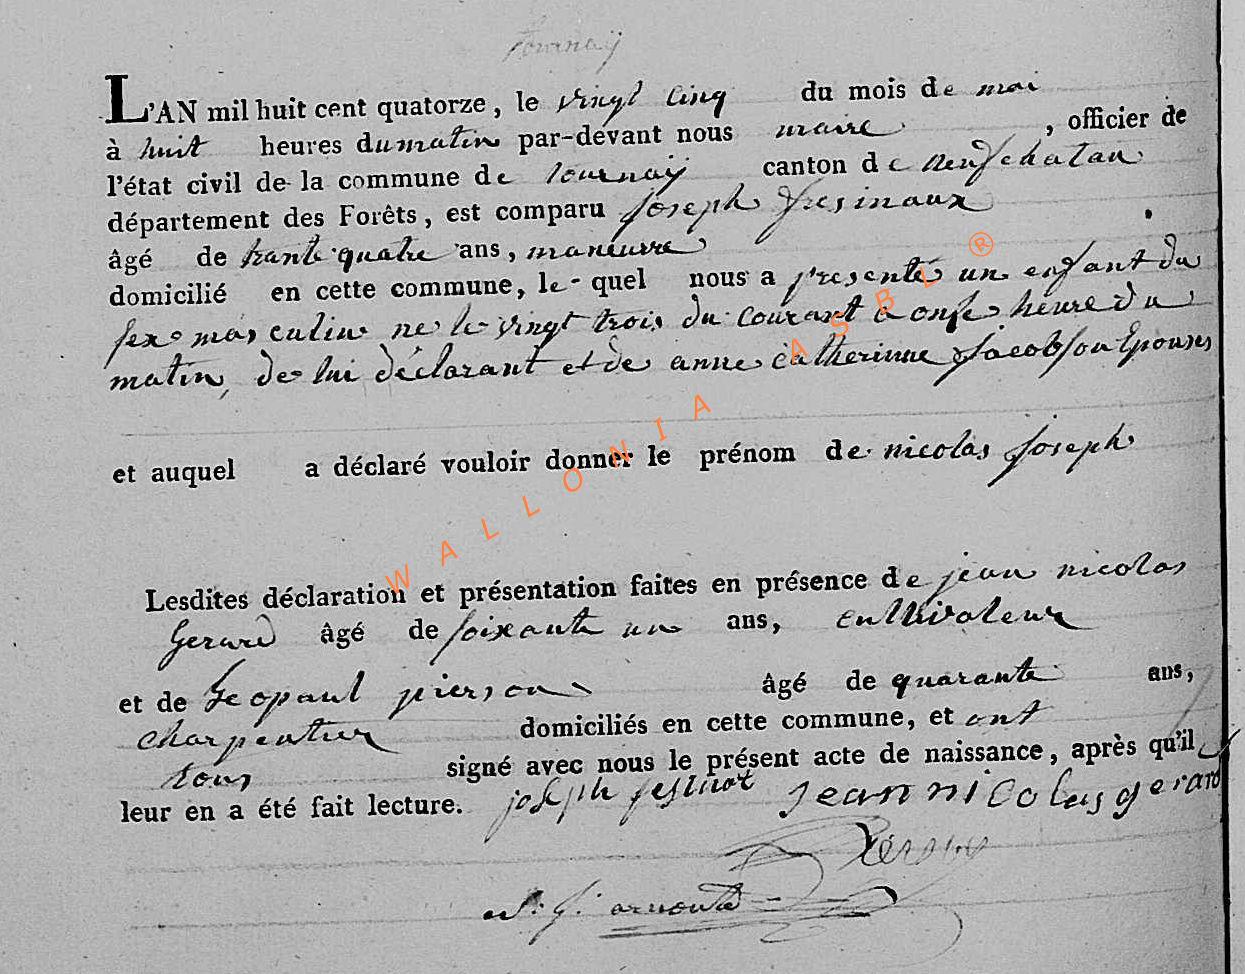 tournay
L'AN mil huit cent quatorze, le vingt cinq du mois de mai
à huit heures du matin par-devant nous maire, officier de
l'état civil de la commune de tournay canton de neufchatau
département des Forêts, est comparu joseph fresinaux
âgé de trante quatre ans, maneuvre
domicilié en cette commune, le quel nous a presenté un enfant du
sex masculin ne le vingt trois du courant a onse heure du
matin, de lui déclarant et de anne catherinne Jacob son Epouses
et auquel a déclaré vouloir donner le prénom de nicolas joseph
Lesdites déclaration et présentation faites en présence de jean nicolas
Gerard âgé de soixante un ans, cultivateur
et de Leopaul pierson âgé de quarante ans,
charpentier domiciliés en cette commune, et ont
tous signé avec nous le présent acte de naissance, après qu'il
leur en a été fait lecture. joseph jean nicolas gerard
arnould
WALLONIA ASBL ®